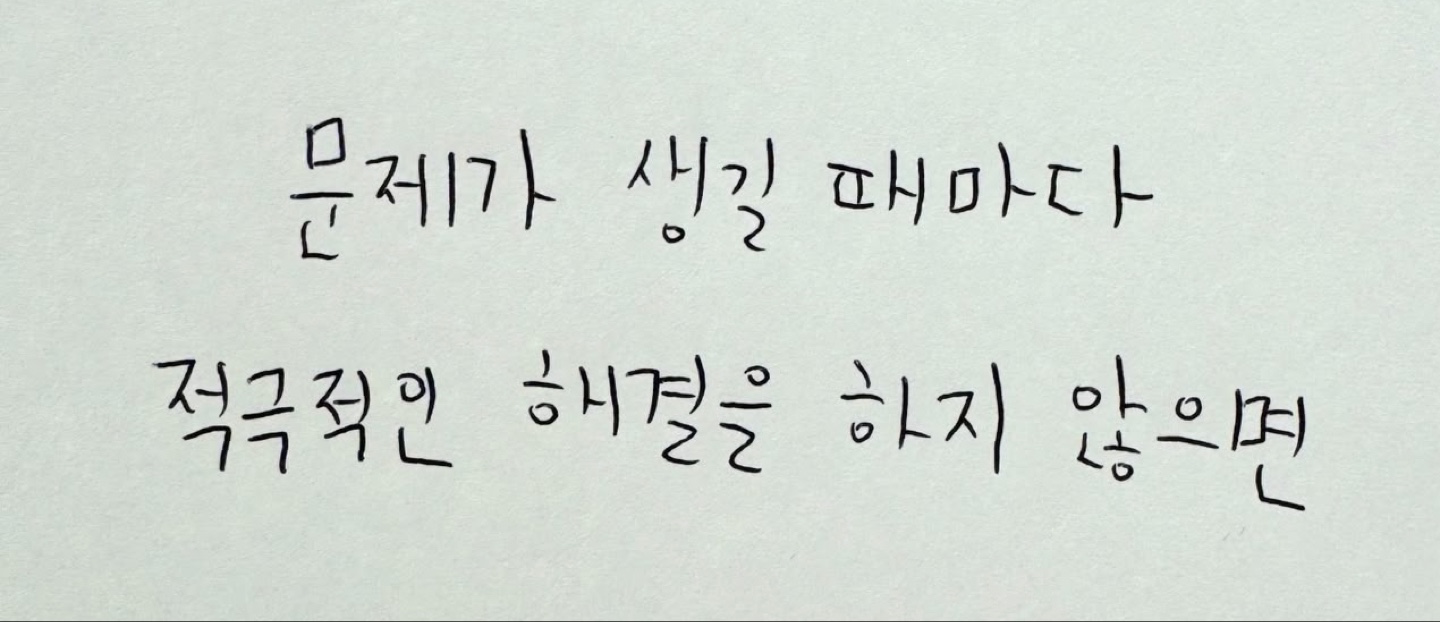 문제가 생길 때마다
적극적인 해결을 하지 않으면